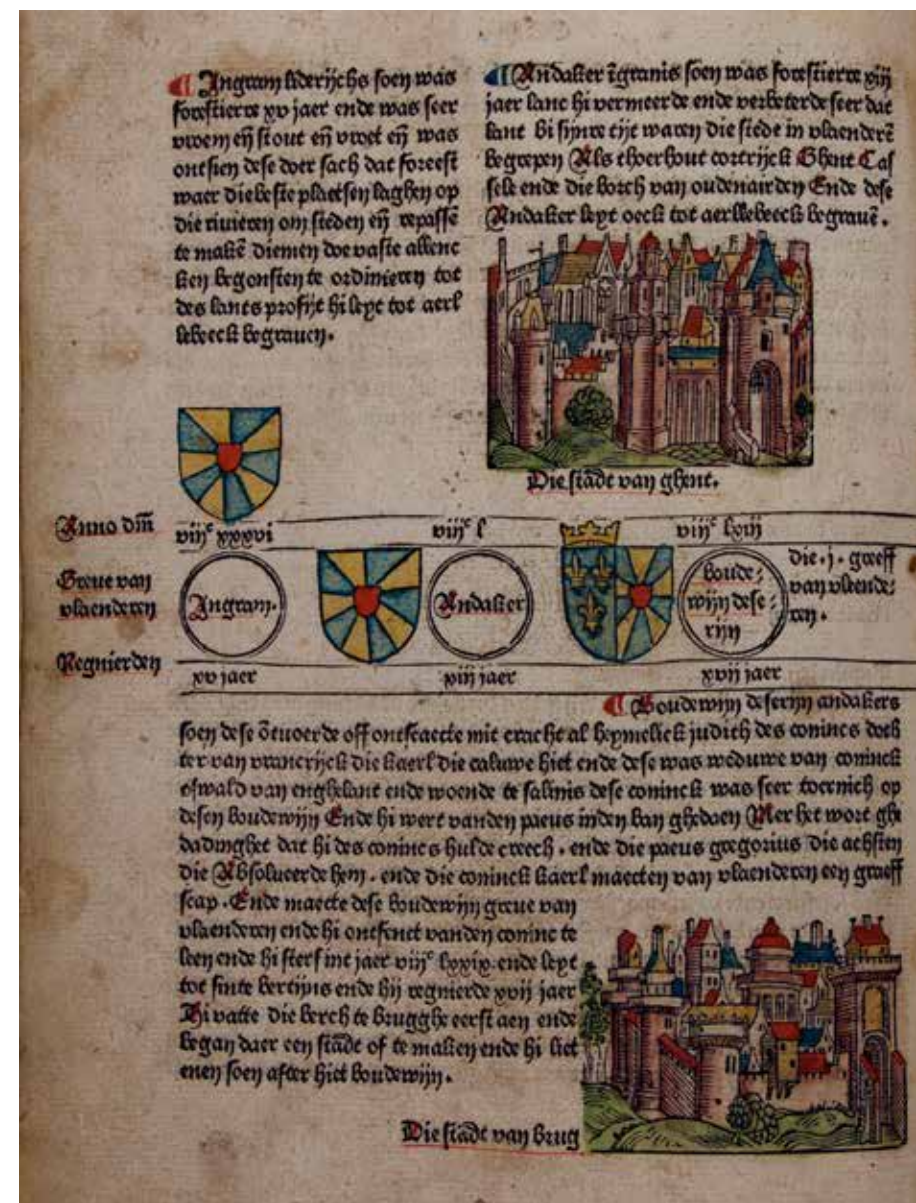 ¶ Ingram liderijchs soen was
forestierre xv jaer ende was seer
vroem eñ stout eñ vroet eñ was
ontsien dese doer sach dat foreest
waer die beste plaetsen laghen op
die rivieren om steden eñ repassē
te makē diemen doe vaste allenc
ken begonsten te ordinieren tot
des lants profijt hi leyt tot aerl
lebeeck begrauen.
¶ Andaker īgranis soen was forestierre xiij
jaer lanc hi vermeerde ende verbeterde seer dat
lant Bi sijnre tijt waren die stede in vlaenderē
begrepen Als thoerhout cortrijck Ghent Cas
sele ende die borch van oudenairden Ende dese
Andaker leyt oeck tot aerllebeeck begrauē.
Die stadt van ghent.
Anno dm̄
viijᶜ xxxvi
viijᶜ l
viijᶜ lxiij
Greue van
vlaenderen
Ingram.
Andaker
boude:
wijn dese:
rijn
die .j. greeff
van vlaende:
ren.
Regnierden
xv jaer
xiij jaer
xvij jaer
¶ Boudewijn deserijn andakers
soen dese ōtuoerde off ontscaecte mit cracht al heymelick judich des conincs doch
ter van vrancrijck die kaerl die caluwe hiet ende dese was weduwe van coninck
eswald van enghelant ende woende te salinis dese coninck was seer toernich op
desen boudewijn Ende hi wert vanden paeus inden ban ghedaen Mer het wort ghe
dadinghet dat hi des conincs hulde creech. ende die paeus gregorius die achsten
die Absolueerde hem. ende die coninck kaerl maecten van vlaenderen een graeff
scap. Ende maecte dese boudewijn greue van
vlaenderen ende hi ontfenct vanden coninc te
leen ende hi sterf int jaer viijᶜ lxxix ende leyt
tot sinte bertijns ende hij regnierde xvij jaer
Hi vatte die berch te brugghe eerst aen ende
began daer een stadt of te maken ende hi liet
enen soen after hiet boudewijn.
Die stadt van brug